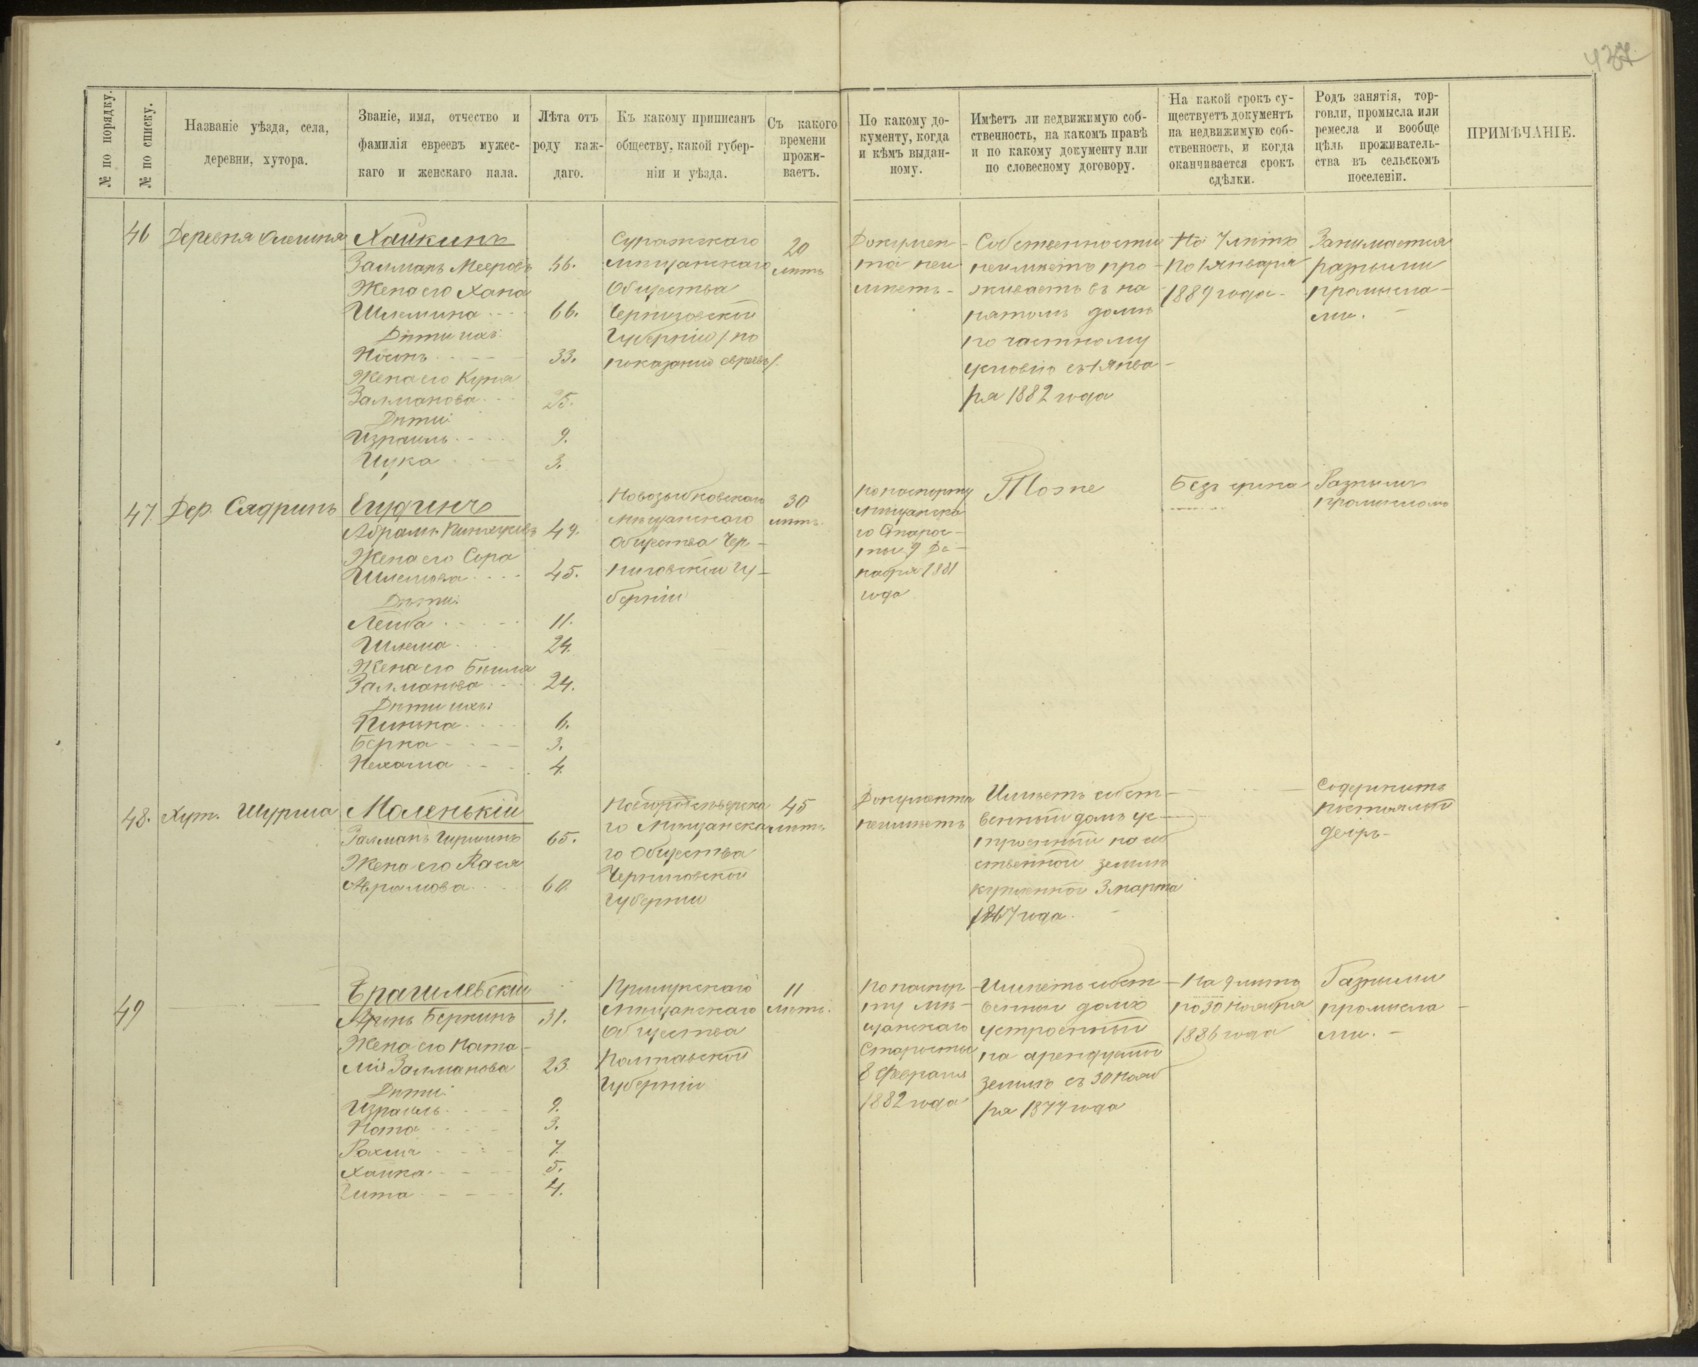 № по порядку.
№ по списку.
Названіе уѣзда, села,
деревни, хутора.
Званіе, имя, отчество и
фамилія евреевъ мужес-
каго и женскаго пала.
Лѣта отъ
роду каж-
даго.
Къ какому приписанъ
обществу, какой губер-
ніи и уѣзда.
Съ какого
времени
прожи-
ваетъ.
По какому до-
кументу, когда
и кѣмъ выдан-
ному.
Имѣетъ ли недвижимую соб-
ственность, на какомъ правѣ
и по какому документу или
по словесному договору.
На какой срокъ су-
ществуетъ документъ
на недвижимую соб-
ственность, и когда
оканчивается срокъ
сдѣлки.
Родъ занятія, тор-
говли, промысла или
ремесла и вообще
цѣль проживатель-
ства въ сельскомъ
поселеніи.
ПРИМѢЧАНІЕ.
46
Деревня
Хайкинъ
Залманъ Мееровъ 56.
Жена его Хана
Шлемина 66.
Дѣти ихъ
Носинъ 33.
Жена его Куня
Залманова 25.
Дѣти
Израиль 9.
3.
Суражскаго
мѣщанскаго
Общества
Черниговской
Губерніи /по
показанію еврея/.
20
лѣтъ
Докумен-
та неи-
мѣетъ
Собственности
неимѣетъ про-
живаетъ въ на
нятомъ домѣ
по частному
условію съ 1 Янва-
ря 1882 года
На 7 лѣтъ
по 1 Января
1889 года
Занимается
разными
промысла-
ми.
47
Дер. Сядринъ
Абрамъ 49.
Жена его Сора
Шлемова 45.
Дѣти
Лейба 11.
Шлема 24.
Жена его Бейла
Залманова 24.
Дѣти ихъ
Пинька 6.
Берка 3.
Нехама 4
Новозыбковскаго
мѣщанскаго
Общества Чер-
ниговской Гу-
берніи
30
лѣтъ
по паспорту
Мѣщанска
го Старос-
ты 9 Де-
кабря 1881
года
Тоже
Безъ срока
Разными
промыслами
48.
Хут. Шурма
Маленькій
Залманъ 65.
Жена его Хася
Абрамова 60
Новгородсѣверска
го Мѣщанска
го Общества
Черниговской
Губерніи
45
лѣтъ
Документа
неимѣетъ
Имѣетъ собст-
венный домъ ус-
троенный на соб
ственной земли
купленной 3 марта
1867 года
Содержитъ
постоялый
дворъ
49
Брагилевскій
Беркинъ 31.
Жена его
Залманова 23
Дѣти
Израиль 9.
Ната 3.
7
Хайка 5.
Гита 4.
Прилукскаго
Мѣщанскаго
Общества
Полтавской
Губерніи
11
лѣтъ.
По паспор
ту мѣ-
щанскаго
Старосты
8 Февраля
1882 года
Имѣетъ собст
венный домъ
устроенный
на арендуемой
землѣ съ 30 Нояб
ря 1877 года
На 9 лѣтъ
по 30 Ноября
1886 года
Разными
промысла
ми.